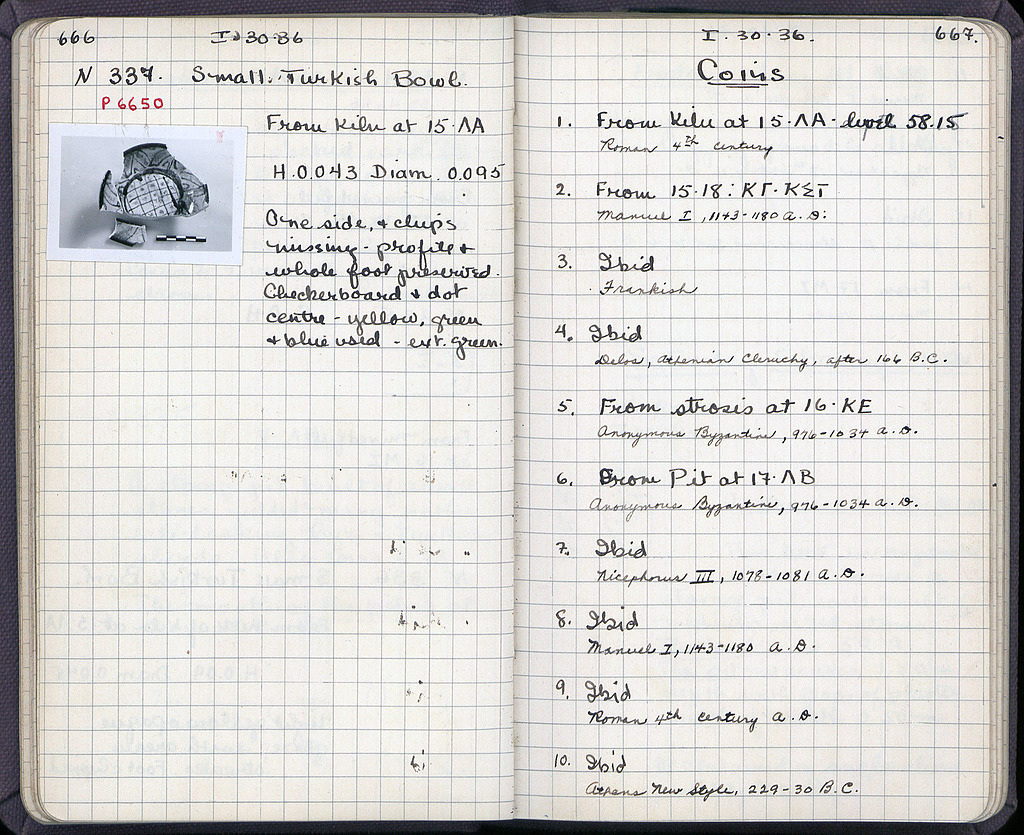 666
I-30-36
N 337. Small Turkish Bowl.
P 6650
From Kiln at 15·ΛΑ
H. 0.043 Diam. 0.095
One side, & chips
missing - profile &
whole foot preserved.
Checkerboard & dot
centre - yellow, green
& blue used - ext. green.
I·30·36.
667.
Coins
1. From Kiln at 15·ΛΑ - level 58.15
Roman 4th century
2. From 15-18: ΚΓ-ΚΣΤ
Manuel I, 1143-1180 A.D.
3. Ibid
Frankish
4. Ibid
Delos, Athenian Cleruchy, after 166 B.C.
5. From strosis at 16·ΚΕ
Anonymous Byzantine, 976-1034 A.D.
6. From Pit at 17·ΛΒ
Anonymous Byzantine, 976-1034 A.D.
7. Ibid
Nicephorus III, 1078-1081 A.D.
8. Ibid
Manuel I, 1143-1180 A.D.
9. Ibid
Roman 4th century A.D.
10. Ibid
Athens New Style, 229-30 B.C.